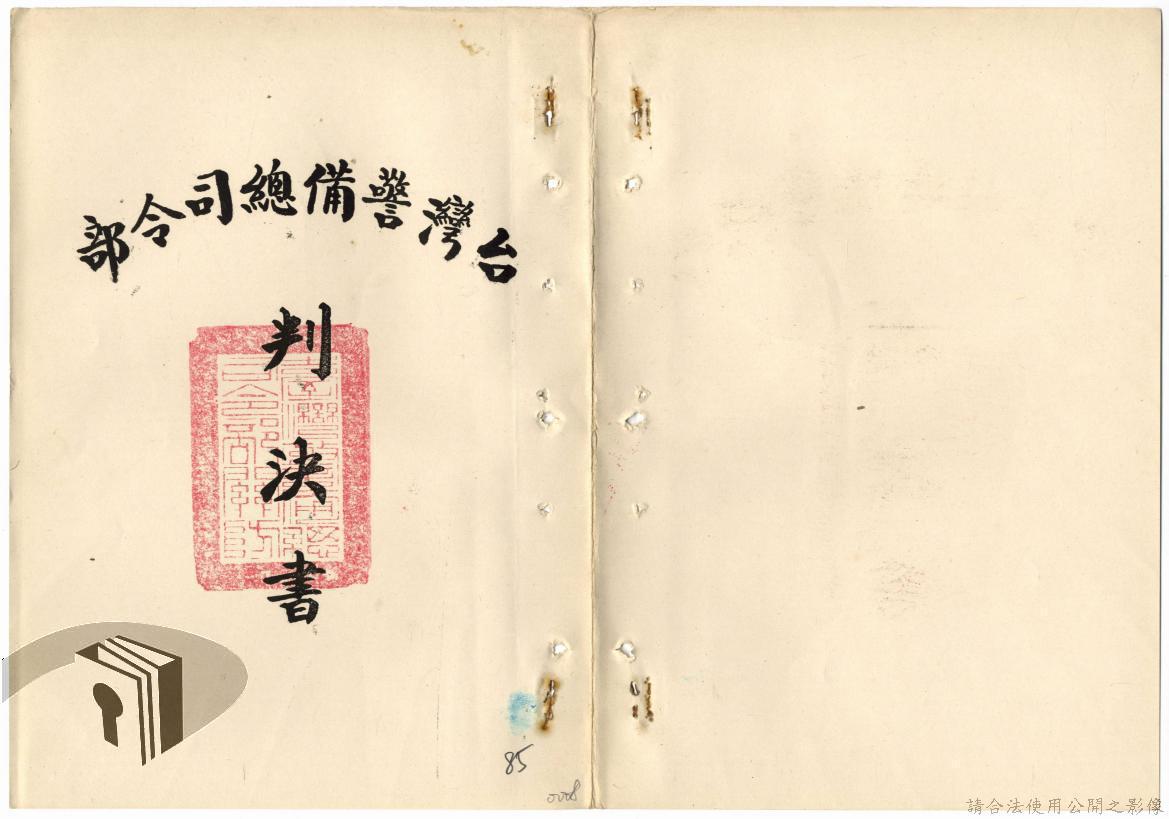 台灣警備總司令部
判決書
85
0008
請合法使用公開之影像